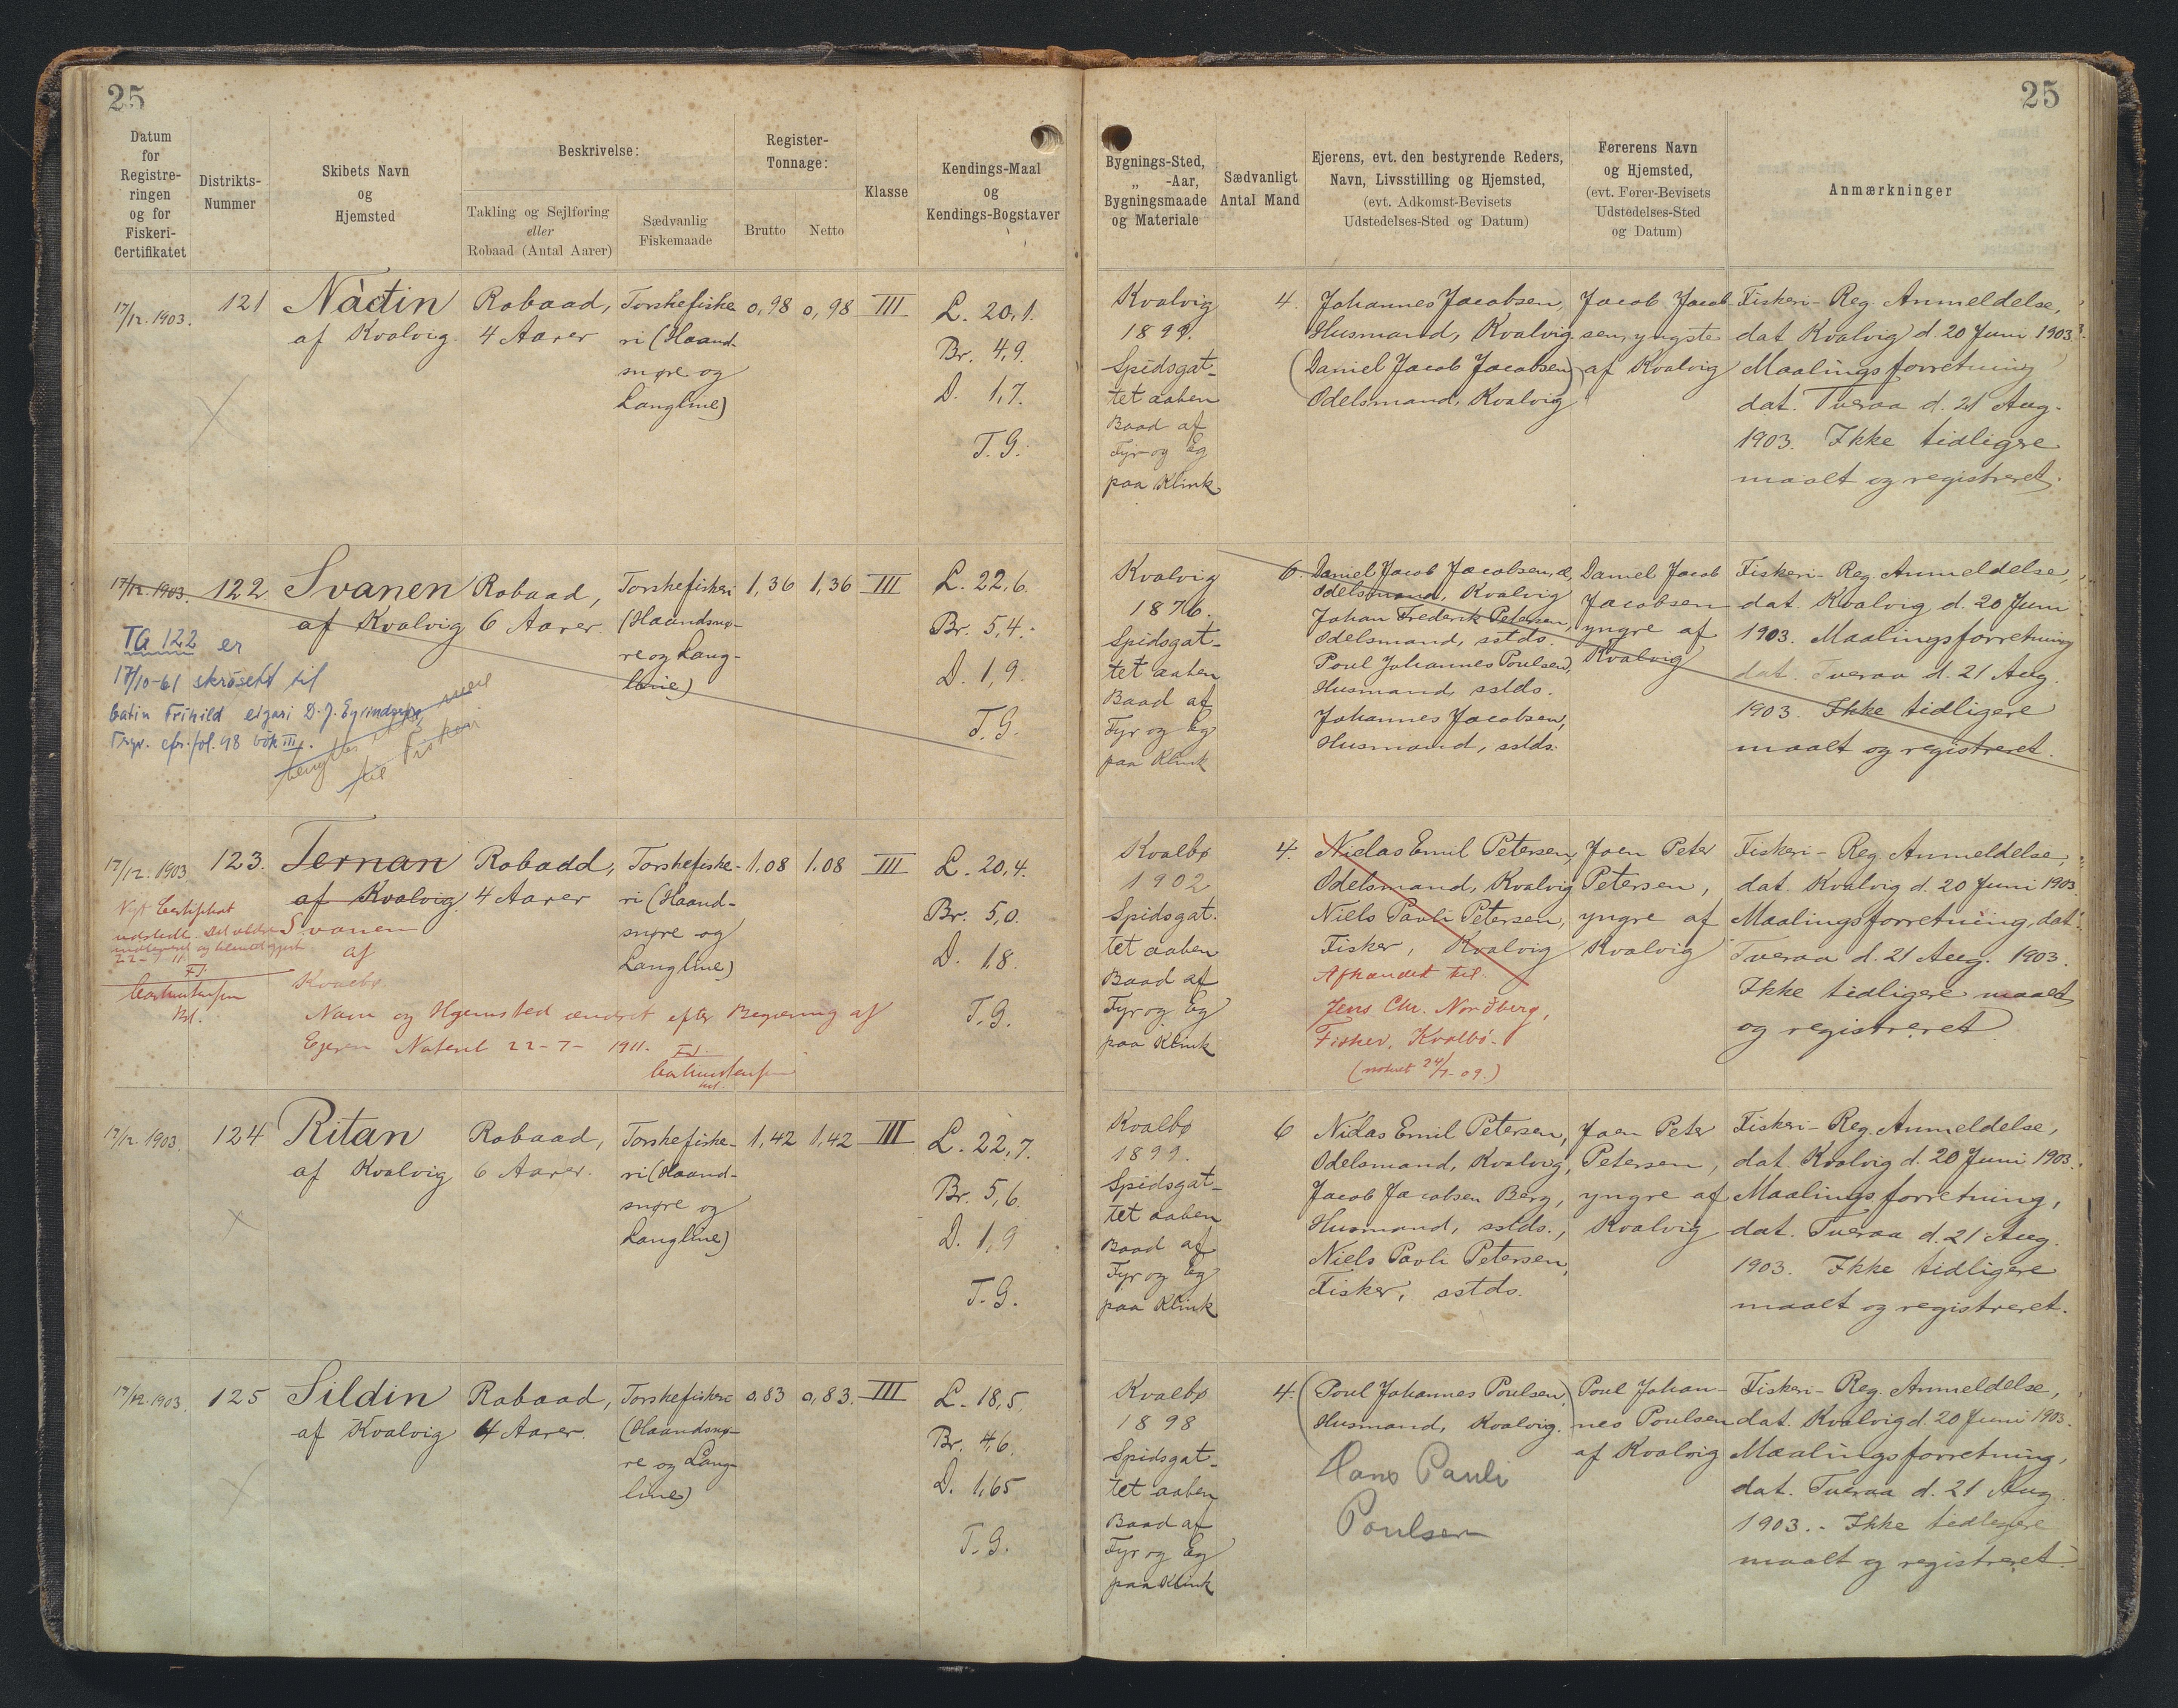 25
25
Datum
for
Registre-
ringen
og for
Fiskeri-
Certifikatet
Distrikts-
Nummer
Skibets Navn
og
Hjemsted
Beskrivelse:
Takling og Sejlføring
eller
Robaad (Antal Aarer)
Sædvanlig
Fiskemaade
Register-
Tonnage:
Brutto
Netto
Klasse
Kendings-Maal
og
Kendings-Bogstaver
Bygnings-Sted,
„ -Aar,
Bygningsmaade
og Materiale
Sædvanligt
Antal Mand
Ejerens, evt. den bestyrende Reders,
Navn, Livsstilling og Hjemsted,
(evt. Adkomst-Bevisets
Udstedelses-Sted og Datum)
Førerens Navn
og Hjemsted,
(evt. Fører-Bevisets
Udstedelses-Sted
og Datum)
Anmærkninger
17/12. 1903.
121
Nàdtin
af Kvalvig.
Robaad,
4 Aarer
Torskefiske
ri (Haand-
snøre og
Langline)
0,98
0,98
III
L. 20,1.
Br. 4,9.
D. 1,7.
T.G.
Kvalvig
1899.
Spidsgat-
tet aaben
Baad af
Fyr og Eg
paa Klink
4.
Johannes Jacobsen,
Husmand, Kvalvig.
(Daniel Jacob Jacobsen)
Odelsmand, Kvalvig
Jacob Jacob-
sen, yngste
af Kvalvig
Fiskeri-Reg. Anmeldelse,
dat Kvalvig d. 20 Juni 1903.
Maalingsforretning
dat. Tveraa d. 21 Aug.
1903. Ikke tidligere
maalt og registreret.
17/12. 1903.
122
Svanen
af Kvalvig
Robaad,
6 Aarer.
Torskefiskeri
(Haandsnø-
re og Lang-
line)
1,36
1,36
III
L. 22,6.
Br. 5,4.
D. 1,9.
T.G.
TG 122 er
17/10-61 skrásett til
bátin Frihild eigari D. J.
Tvør. cfr. fol. 98 bók III.
til Fiskari
Kvalvig
1876.
Spidsgat-
tet aaben
Baad af
Fyr og Eg
paa Klink
6.
Daniel Jacob Jacobsen, æ,
Odelsmand, Kvalvig
Johan Frederik Petersen,
Odelsmand, sstds.
Poul Johannes Poulsen,
Husmand, sstds.
Johannes Jacobsen,
Husmand, sstds.
Daniel Jacob
Jacobsen
yngre af
Kvalvig
Fiskeri-Reg. Anmeldelse,
dat. Kvalvig d. 20 Juni
1903. Maalingsforretning
dat. Tveraa d. 21 Aug.
1903. Ikke tidligere
maalt og registreret.
17/12. 1903
123.
Ternan
af Kvalvig.
Robadd,
4 Aarer
Torskefiske-
ri (Haand-
snøre og
Langline)
1,08
1.08
III
L. 20,4.
Br. 5,0.
D. 1,8.
T.G.
Nyt Certifikat
udstedt. Det ældre
22-7-11
Svanen
af
Kvalbø
Navn og Hjemsted ændret efter Begæring af
Ejeren Noteret 22-7-1911.
Kvalbø
1902
Spidsgat.
tet aaben
Baad af
Fyr og Eg
paa Klink
4.
Niclas Emil Petersen,
Odelsmand, Kvalvig
Niels Pauli Petersen,
Fisker, Kvalvig
Afhændet til
Jens Chr. Norðberg,
Fisker, Kvalbø.
(noteret 24/7-09.)
Joen Peter
Petersen,
yngre af
Kvalvig
Fiskeri-Reg. Anmeldelse,
dat. Kvalvig d. 20 Juni 1903.
Maalingsforretning, dat.
Tveraa d. 21 Aug. 1903.
Ikke tidligere maalt
og registreret
17/12. 1903.
124
Ritan
af Kvalvig
Robaad,
6 Aarer.
Torskefiske-
ri (Haand-
snøre og
Langline)
1,42
1,42
III
L. 22,7.
Br. 5,6.
D. 1,9
T.G.
Kvalbø
1899.
Spidsgat-
tet aaben
Baad af
Fyr og Eg
paa Klink
6
Niclas Emil Petersen,
Odelsmand, Kvalvig,
Jacob Jacobsen Berg,
Husmand, sstds.,
Niels Pauli Petersen,
Fisker, sstds.
Joen Peter
Petersen,
yngre af
Kvalvig
Fiskeri-Reg. Anmeldelse,
dat. Kvalvig d. 20 Juni 1903.
Maalingsforretning,
dat. Tveraa d. 21 Aug.
1903. Ikke tidligere
maalt og registreret.
17/12. 1903.
125
Sildin
af Kvalvig
Robaad,
4 Aarer.
Torskefiskeri
(Haandsnø-
re og Lang-
line)
0,83
0,83.
III
L. 18,5
Br. 4,6.
D. 1,65
T.G.
Kvalbø
1898
Spidsgat-
tet aaben
Baad af
Fyr og Eg
paa Klink
4.
(Poul Johannes Poulsen,)
Husmand, Kvalvig.
Hans Pauli
Poulsen
Poul Johan-
nes Poulsen
af Kvalvig
Fiskeri-Reg. Anmeldelse,
dat. Kvalvig d. 20 Juni 1903.
Maalingsforretning,
dat. Tveraa d. 21 Aug.
1903. - Ikke tidligere
maalt og registreret.